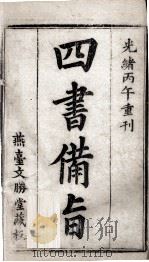 光緒丙午重刊
四書備旨
燕臺文勝堂藏板